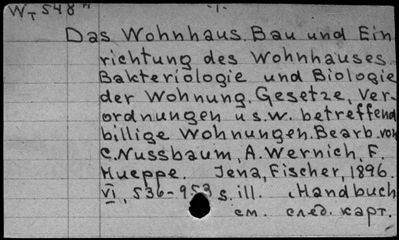 W_T 548
Das Wohnhaus. Bau und Ein
richtung des Wohnhauses.
Bakteriologie und Biologie
der Wohnung. Gesetze, Ver-
ordnungen u s.w. betreffend
billige Wohnungen. Bearb. von
C. Nussbaum, A. Wernich, F.
Hueppe. Jena, Fischer, 1896.
VI, 536-953 s. ill. (Handbuch
см. след. карт.